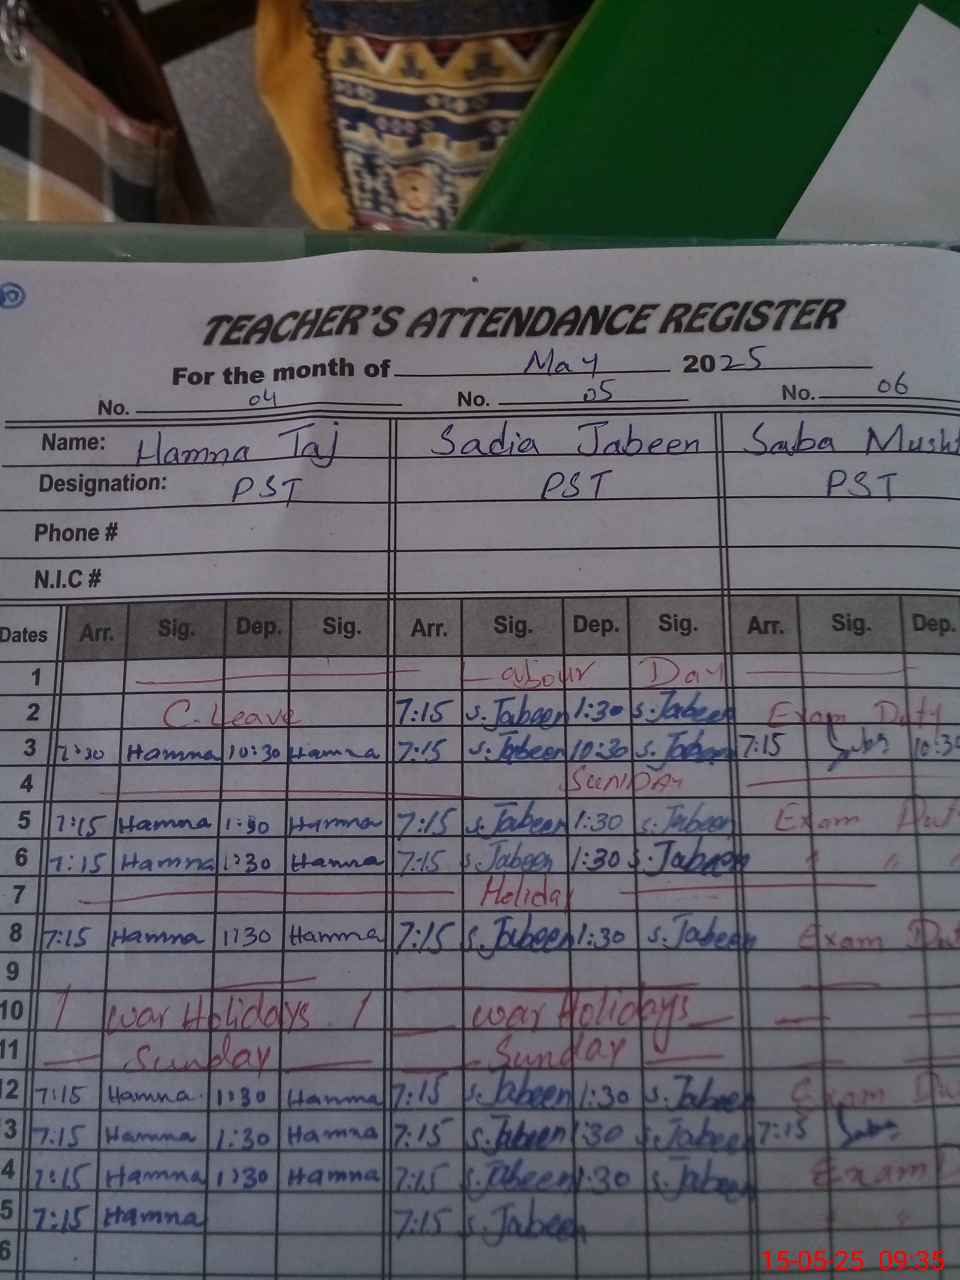 TEACHER'S ATTENDANCE REGISTER
For the month of May 2025
No. 04 No. 05 No. 06
Name: Hamna Taj Sadia Jabeen Saba
Designation: PST PST PST
Phone #
N.I.C #
Dates Arr. Sig. Dep. Sig. Arr. Sig. Dep. Sig. Arr. Sig. Dep.
1 Labour Day
2 C. Leave 7:15 S.Jabeen 1:30 S.Jabeen Exam Duty
3 7:30 Hamna 10:30 Hamna 7:15 S.Jabeen 10:30 S.Jabeen 7:15 Saba 10:30
4 SUNDAY
5 7:15 Hamna 1:30 Hamna 7:15 S.Jabeen 1:30 S.Jabeen Exam
6 7:15 Hamna 1:30 Hamna 7:15 S.Jabeen 1:30 S.Jabeen " " "
7 Holiday
8 7:15 Hamna 1:30 Hamna 7:15 S.Jabeen 1:30 S.Jabeen Exam
9
10 War Holidays War Holidays
11 Sunday Sunday
12 7:15 Hamna 1:30 Hamna 7:15 S.Jabeen 1:30 S.Jabeen Exam
3 7:15 Hamna 1:30 Hamna 7:15 S.Jabeen 1:30 S.Jabeen 7:15 Saba
4 7:15 Hamna 1:30 Hamna 7:15 S.Jabeen 1:30 S.Jabeen Exam
5 7:15 Hamna 7:15 S.Jabeen " "
6
15-05-25 09:35